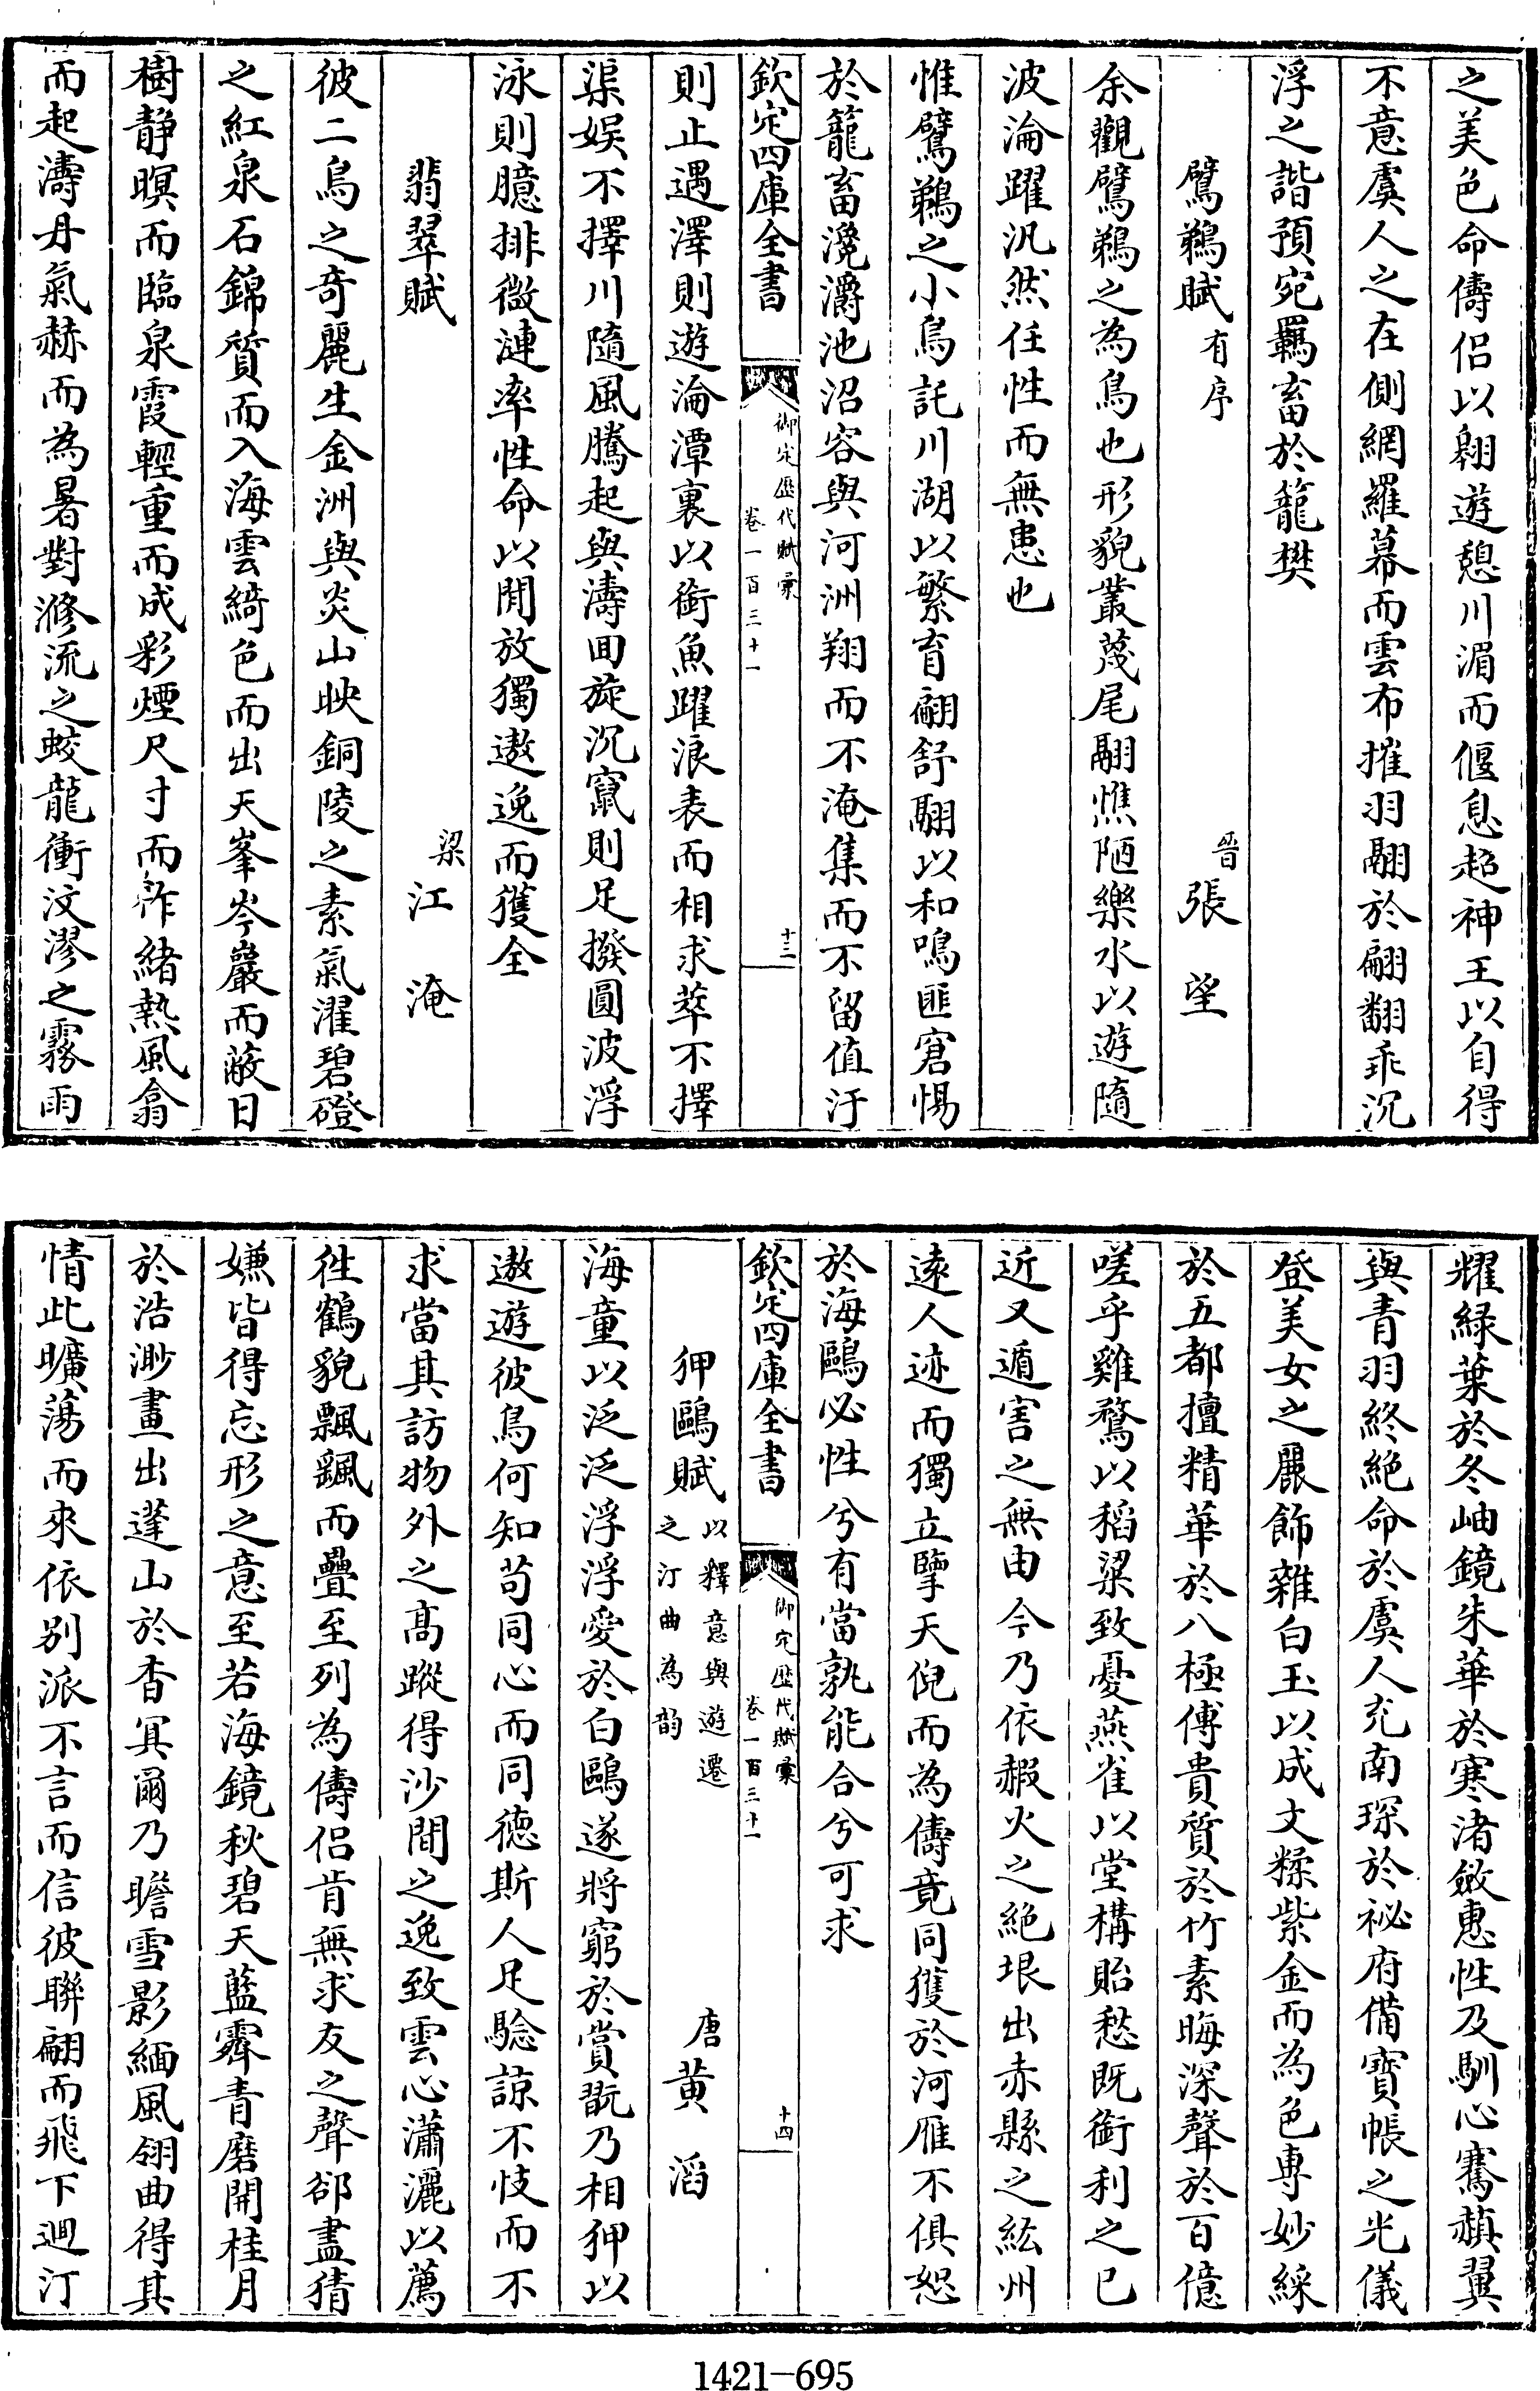 之美色命儔侣以翱遊憩川湄而偃息超神王以自得
不意虞人之在側網羅幕而雲布摧羽翮於翩翻乖沉
浮之諧預宛羈畜於籠樊
鷿鵜賦有序 晉張望
余觀鷿鵜之為鳥也形貌叢蔑尾翮憔陋樂水以遊隨
波淪躍汎然任性而無患也
惟鷿鵜之小鳥託川湖以繁育翩舒翮以和鳴匪窘惕
於籠畜㴒瀯池沼容與河洲翔而不淹集而不留值汙
欽定四庫全書 御定歷代賦彙 卷一百三十一 十三
則止遇澤則遊淪潭裏以銜魚躍浪表而相求萃不擇
渠娛不擇川隨風騰起與濤回旋沉竄則足撥圓波浮
泳則臆排微漣率性命以閒放獨遨逸而獲全
翡翠賦 梁江淹
彼二鳥之奇麗生金洲與炎山映銅陵之素氣濯碧磴
之紅泉石錦質而入海雲綺色而出天峯岑巖而蔽日
樹静暝而臨泉霞輕重而成彩煙尺寸而作緒熱風翕
而起濤丹氣赫而為暑對滫流之蛟龍衝汶漻之霧雨
耀綠葉於冬岫鏡朱華於寒渚斂惠性及馴心騫赬翼
與青羽終絶命於虞人充南琛於祕府備寶帳之光儀
登美女之麗飾雜白玉以成文糅紫金而為色專妙綵
於五都擅精華於八極傳貴質於竹素晦深聲於百億
嗟乎雞鶩以稻粱致憂燕雀以堂構貽愁既銜利之已
近又遁害之無由今乃依赮火之絶垠出赤縣之紘州
遠人迹而獨立擘天倪而為儔竟同獲於河雁不俱恕
於海鷗必性兮有當孰能合兮可求
欽定四庫全書 御定歷代賦彙 卷一百三十一 十四
狎鷗賦以釋意與遊遷之汀曲為韵 唐黄滔
海童以泛泛浮浮愛於白鷗遂將窮於賞翫乃相狎以
遨遊彼鳥何知苟同心而同德斯人足驗諒不忮而不
求當其訪物外之髙蹤得沙間之逸致雲心瀟灑以薦
徃鶴貌飄颻而疊至列為儔侣肯無求友之聲郤盡猜
嫌皆得忘形之意至若海鏡秋碧天藍霽青磨開桂月
於浩渺畫出蓬山於杳冥爾乃瞻雪影緬風翎曲得其
情此曠蕩而來依别派不言而信彼聯翩而飛下迴汀
1421-695